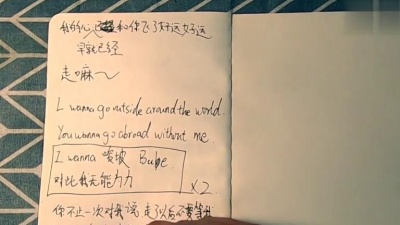 我的心已和你飞了好远好远
早就已经
走嘛～
I wanna go outside around the world
You wanna go abroad without me.
I wanna 嗳坡 Bube
对此我无能力力
×2
你不止一次对我说,走了以后不要等我